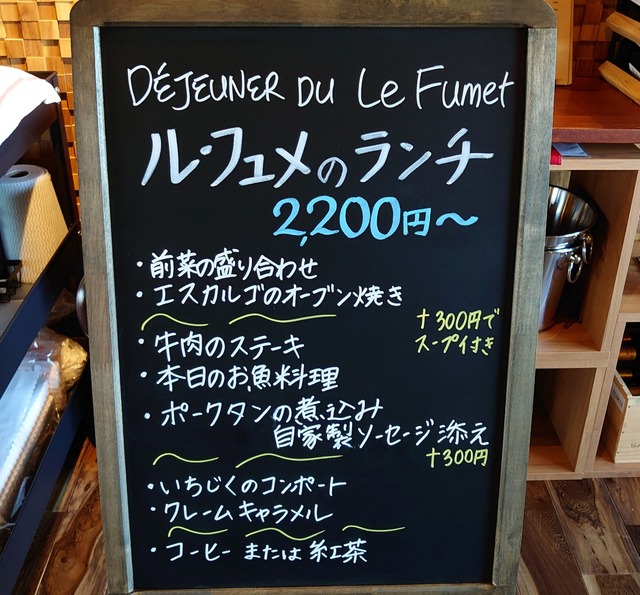 DÉJEUNER DU Le Fumet
ル・フュメのランチ
2,200円〜
・前菜の盛り合わせ
・エスカルゴのオーブン焼き
+300円で
スープ付き
・牛肉のステーキ
・本日のお魚料理
・ポークタンの煮込み
自家製ソーセージ添え
+300円
・いちじくのコンポート
・クレームキャラメル
・コーヒー または 紅茶